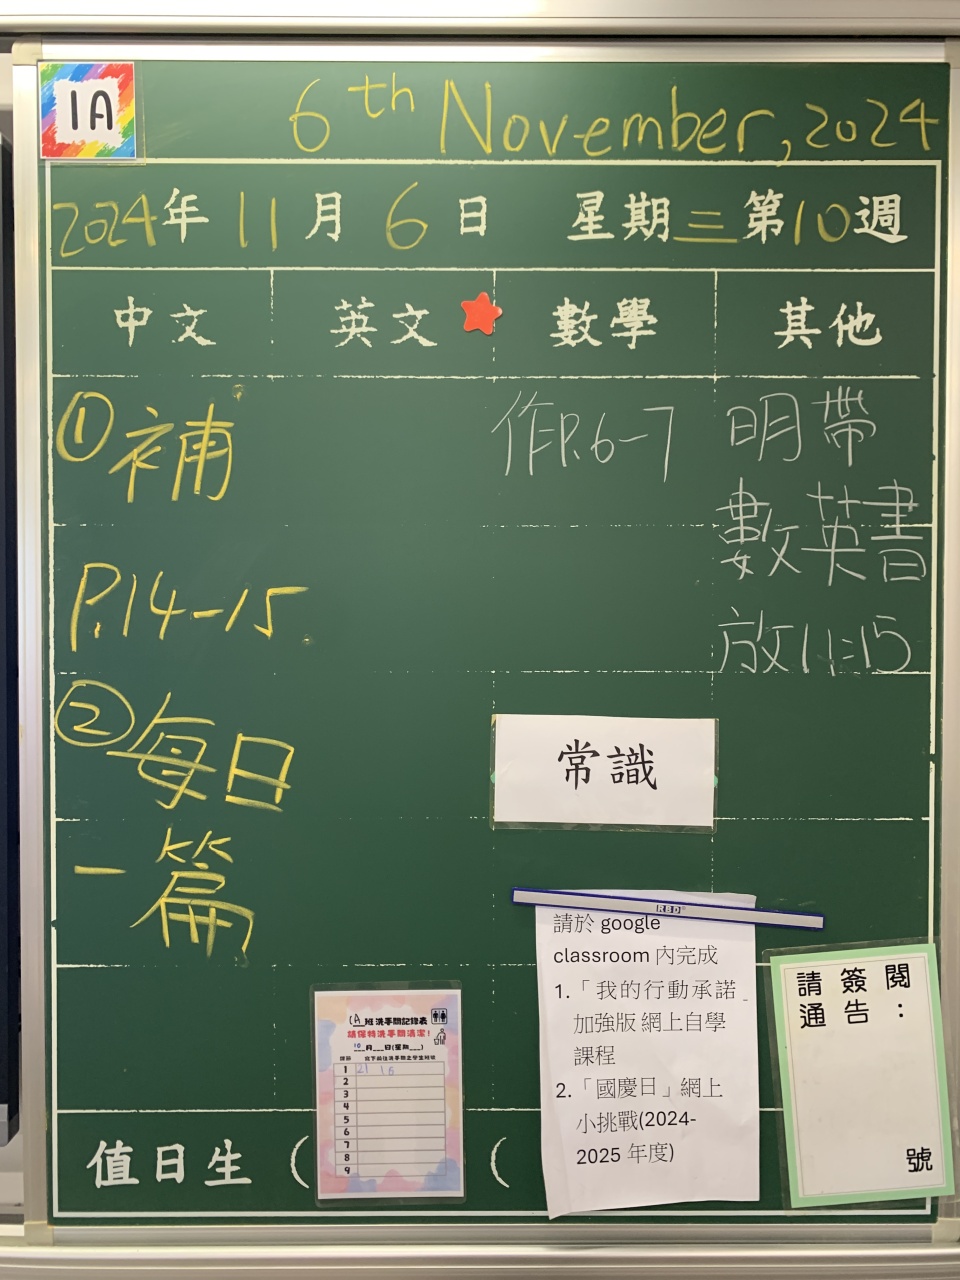 1A
6th November, 2024
2024年 11月 6日 星期三 第10週
中文 英文 數學 其他
①補
P.14-15
②每日
一篇
作P.6-7
明帶
數英書
放11:15
常識
RBD
請於 google
classroom 內完成
1.「我的行動承諾_
加強版 網上自學
課程
2.「國慶日」網上
小挑戰(2024-
2025 年度)
請簽閱
通告：
號
1A班洗手間記錄表
請保持洗手間清潔！
10月___日(星期___)
1 21 16
2
3
4
5
6
7
8
9
值日生 ( (